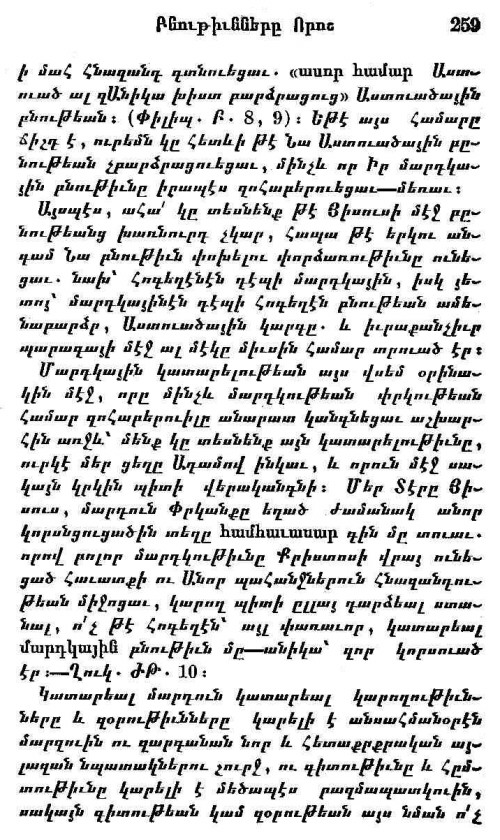 Բնութիւնները Որոշ 259
ի մահ Հնազանդ գտնուեցաւ. «ասոր համար Աստ-
ուած ալ զԱնիկա խիստ բարձրացուց» Աստուածային
բնութեան։ (Փիլիպ. Բ. 8, 9)։ Եթէ այս Համարը
ճիշդ է, ուրեմն կը հետևի թէ Նա Աստուածային բը-
նութեան չբարձրացուեցաւ, մինչև որ Իր մարդկա-
յին բնութիւնը իրապէս զոհաբերուեցաւ—մեռաւ։
Այսպէս, ահա՛ կը տեսնենք թէ Յիսուսի մէջ բը-
նութեանց խառնուրդ չկար, հապա թէ երկու ան-
գամ Նա բնութիւն փոխելու փորձառութիւնը ունե-
ցաւ. նախ՝ Հոգեղէնէն դէպի մարդկային, իսկ յե-
տոյ՝ մարդկայինէն դէպի Հոգեղէն բնութեան ամե-
նաբարձր, Աստուածային կարգը. և իւրաքանչիւր
պարագայի մէջ ալ մէկը միւսին համար տրուած էր։
Մարդկային կատարելութեան այս վսեմ օրինա-
կին մէջ, որը մինչև մարդկութեան փրկութեան
համար զոհաբերուիլը անարատ կանգնեցաւ աշխար-
հին առջև՝ մենք կը տեսնենք այն կատարելութիւնը,
ուրկէ մեր ցեղը Ադամով ինկաւ, և որուն մէջ սա-
կայն կրկին պիտի վերականգնի։ Մեր Տէրը Յի-
սուս, մարդուն Փրկանքը եղած ժամանակ անոր
կորսնցուցածին տեղը համհաւասար գին մը տուաւ.
որով բոլոր մարդկութիւնը Քրիստոսի վրայ ունե-
ցած հաւատքի ու Անոր պահանջներուն հնազանդու-
թեան միջոցաւ, կարող պիտի ըլլայ դարձեալ ստա-
նալ, ո՛չ թէ Հոգեղէն՝ այլ փառաւոր, կատարեալ
մարդկային բնութիւն մը—անիկա՝ զոր կորսուած
էր։—Ղուկ. ԺԹ. 10։
Կատարեալ մարդուն կատարեալ կարողութիւն-
ները և զօրութիւնները կարելի է անսահմանօրէն
մարզուին ու զարգանան նոր և հետաքրքրական այ-
լազան նպատակներու շուրջ, ու գիտութիւնը և հըմ-
տութիւնը կարելի է մեծապէս բազմապատկուին,
սակայն գիտութեան կամ զօրութեան այս նման ո՛չ